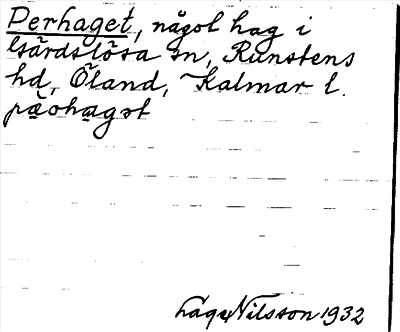 Perhaget, någol hag i
Gärdslösa sn, Runstens
hd, Öland, Kalmar l.
pä̱oha̱gət
Lage Nilsson 1932